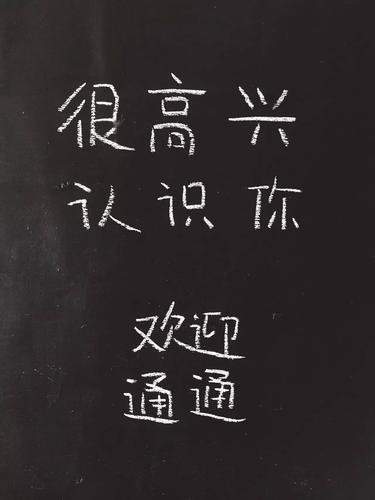 很高兴
认识你
欢迎
通通